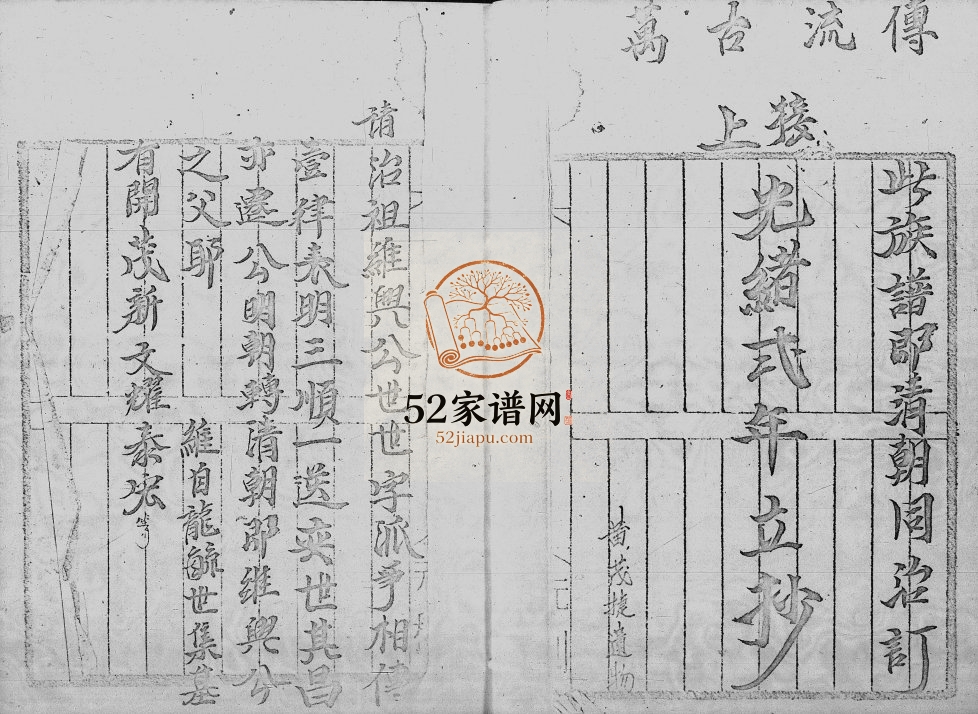 傳流古萬
接上
此族譜即清朝同治訂
光緒弍年立抄
黄茂捷遺物
請治祖維興公世世字派爭相傳
壹律表明三順一送奕世其昌
亦遷公明朝轉清朝即維興公
之父耶 維自龍毓世集基
有開茂新文耀泰宏等
52家谱网
52jiapu.com